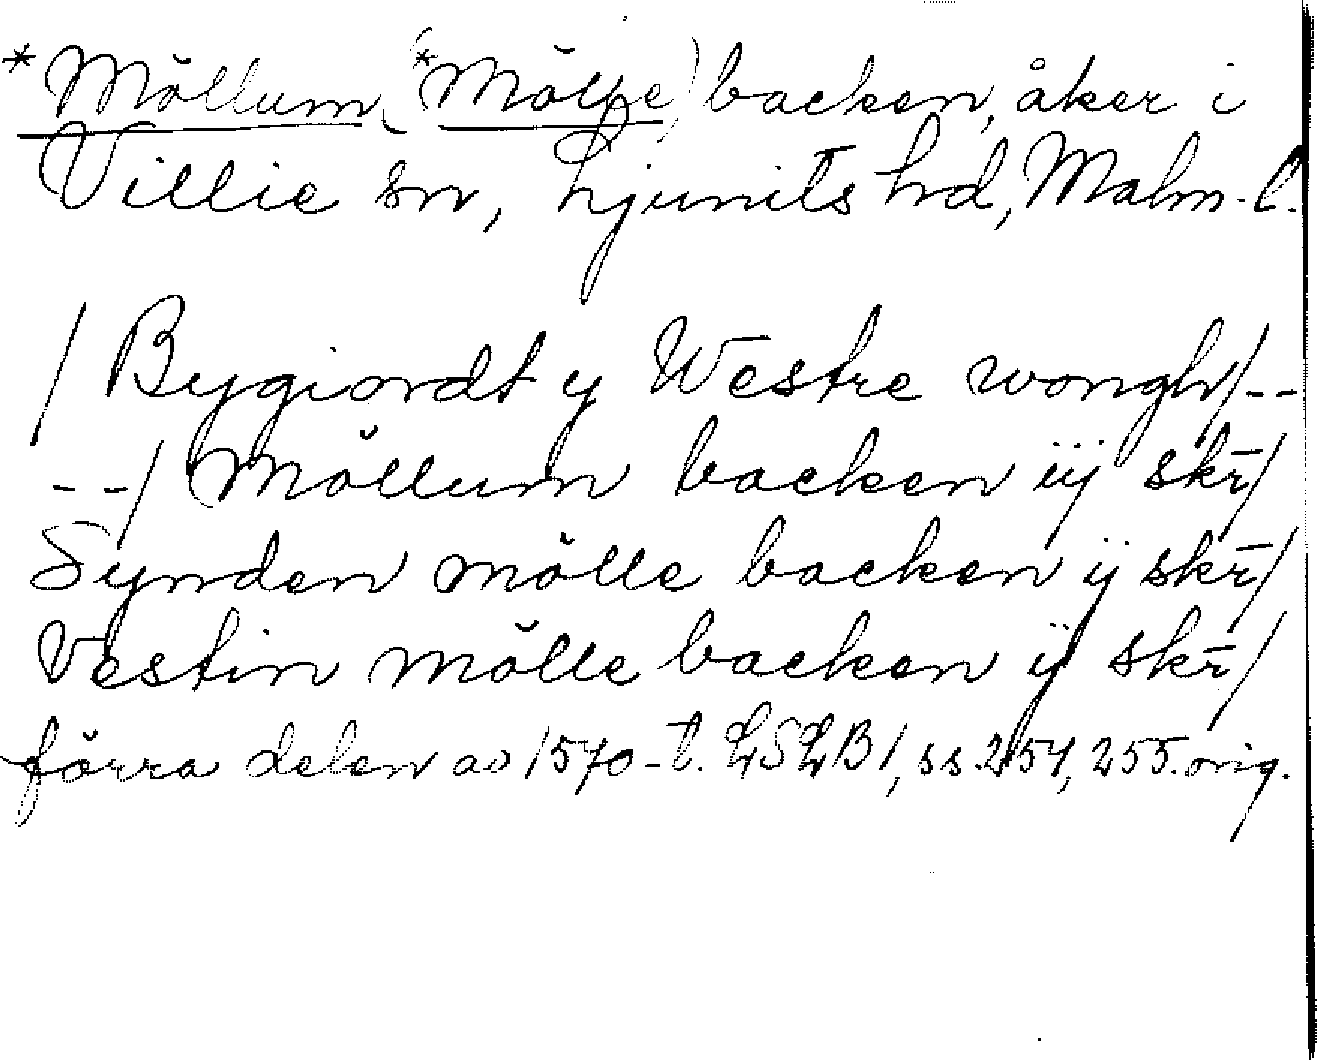 *Möllum (*Mölle) backen, åker i
Villie sn, Ljunits hd, Malm. l.
/ Bygiordt y Westre wongh/--
--/ Möllum backen iij skr̄/
Synden mölle backen ij skr̄/
Vestin mölle backen ij skr̄/
förra delen av 1570-t. LSLB1, ss. 254, 255. orig.